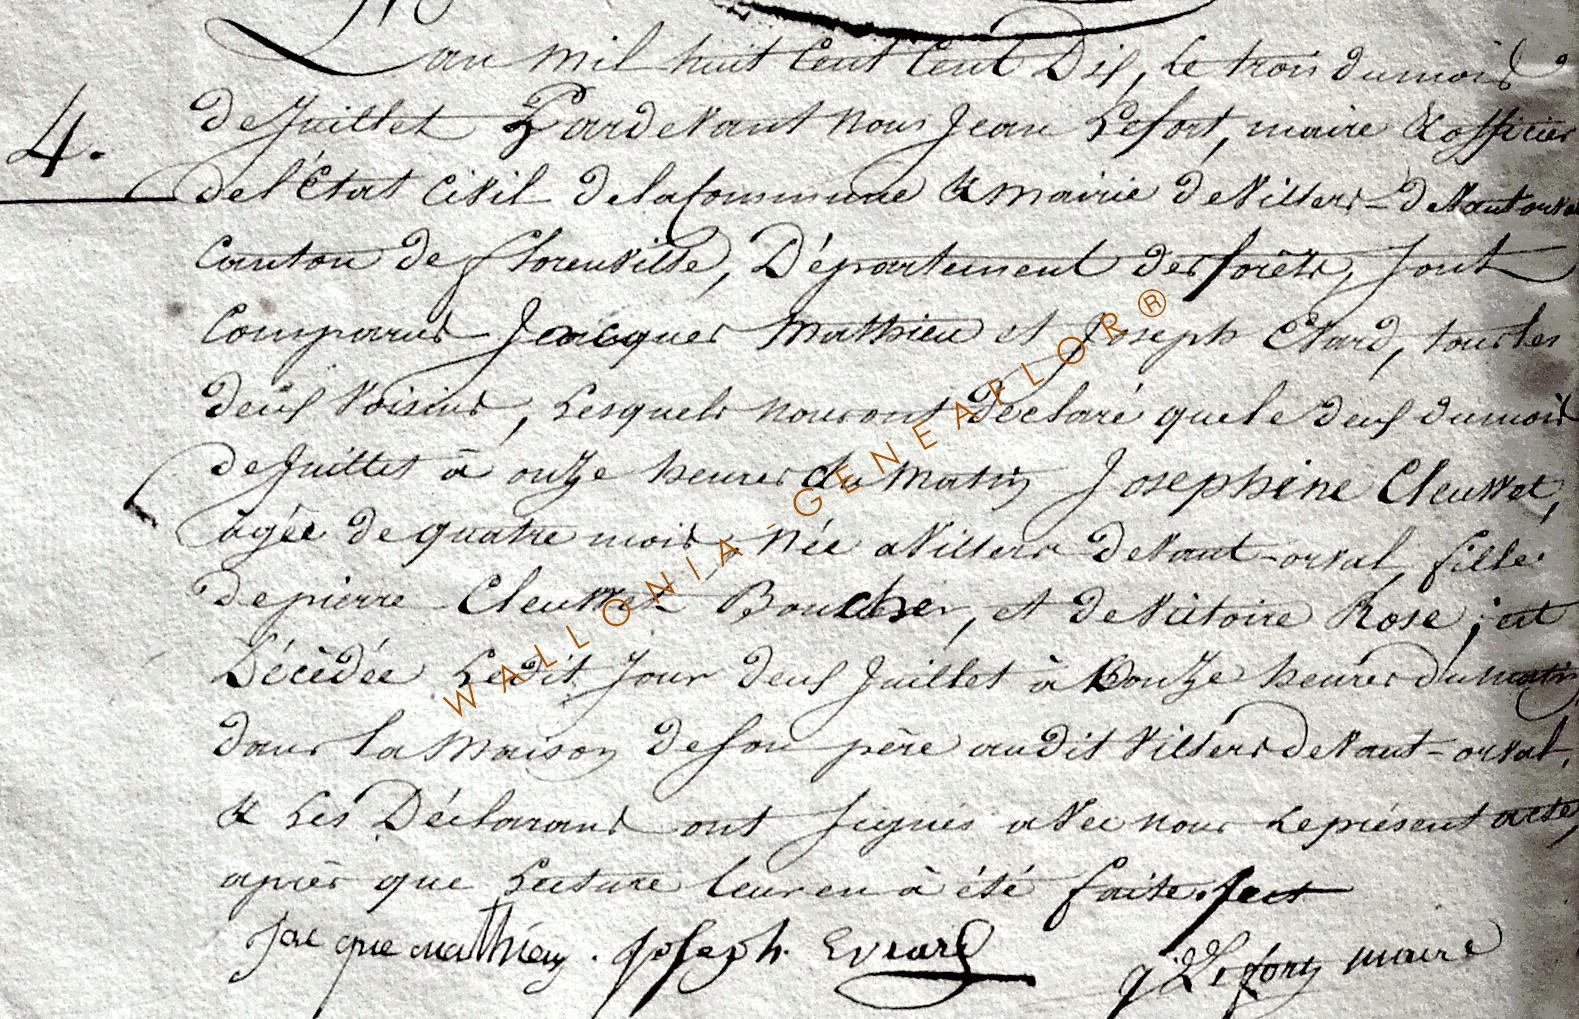 L'an mil huit Cent Cent Dix, Le trois du mois
4. de Juillet Pardevant nous Jean Lefort, maire & officier
de l'État Civil de la Commune & mairie de Villers-devant orval
Canton de florenville, Département des forêts, sont
Comparus Jacques Mathieu et Joseph Evard, tous les
deux Voisins, Lesquels nous ont déclaré que le deux du mois
de Juillet à onze heures du Matin Josephine Cleuvet,
âgée de quatre mois, Née a Villers devant-orval, fille
de pierre Cleuvet Boucher, et de Victoire Rose; est
Décédée Ledit Jour deux Juillet à onze heures du matin
dans la Maison de son père audit Villers devant-orval,
& Les Déclarans ont signés avec nous Le présent acte,
après que Lecture leur en à été faite. fect
Jacque mathieu. Joseph. Evrard Lefort maire
WALLONIA-GENEAFLOR®